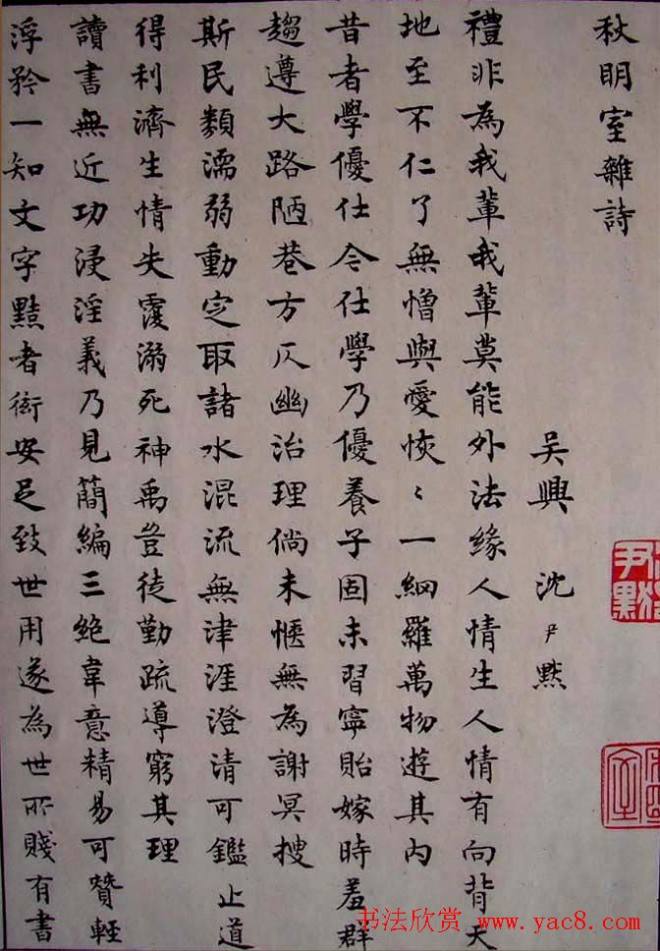 秋明室雜詩
吴興 沈尹默
禮非為我輩我輩莫能外法緣人情生人情有向背天
地至不仁了無憎與愛恢〻一網羅萬物遊其内
昔者學優仕今仕學乃優養子固未習寧貽嫁時羞群
趨遵大路陋巷方仄幽治理倘未愜無為謝冥搜
斯民類濡弱動定取諸水混流無津涯澄清可鑑止道
得利濟生情失覆溺死神禹豈徒勤疏導窮其理
讀書無近功浸淫義乃見蕳編三絶韋意精易可贊輕
浮矜一知文字黠者衒安足致世用遂為世所賤有書
尹默
书法欣赏 www.yac8.com